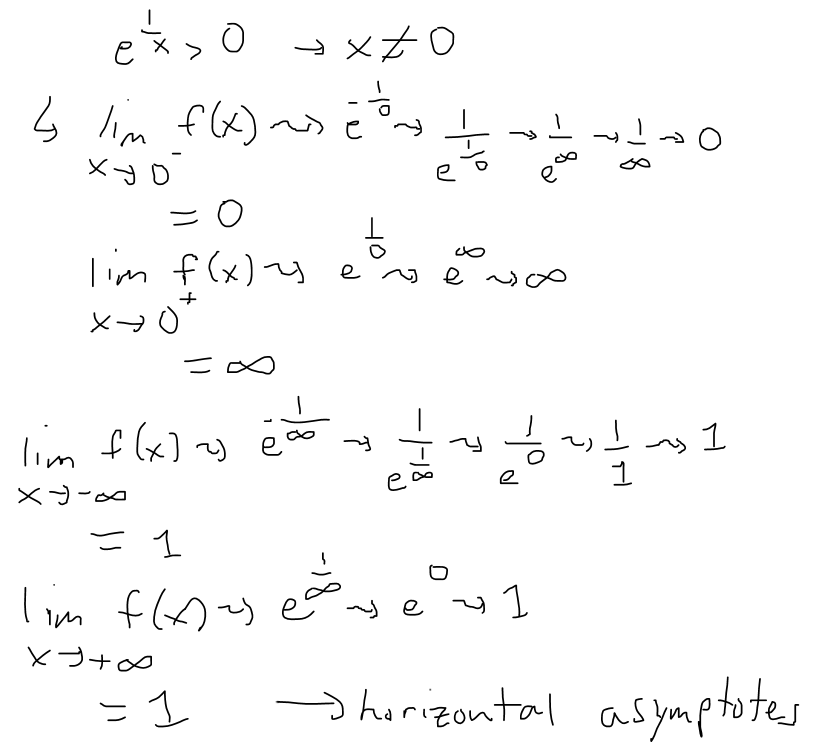 e^{1/x} > 0 → x ≠ 0
↳ lim f(x) ⇝ e^{-1/0} ⇝ 1/e^{1/0} → 1/e^∞ → 1/∞ → 0
x→0⁻
= 0
lim f(x) ⇝ e^{1/0} ⇝ e^∞ ⇝ ∞
x→0⁺
= ∞
lim f(x) ⇝ e^{-1/∞} → 1/e^{1/∞} ⇝ 1/e^0 ⇝ 1/1 ⇝ 1
x→-∞
= 1
lim f(x) ⇝ e^{1/∞} ⇝ e^0 ⇝ 1
x→+∞
= 1 → horizontal asymptotes